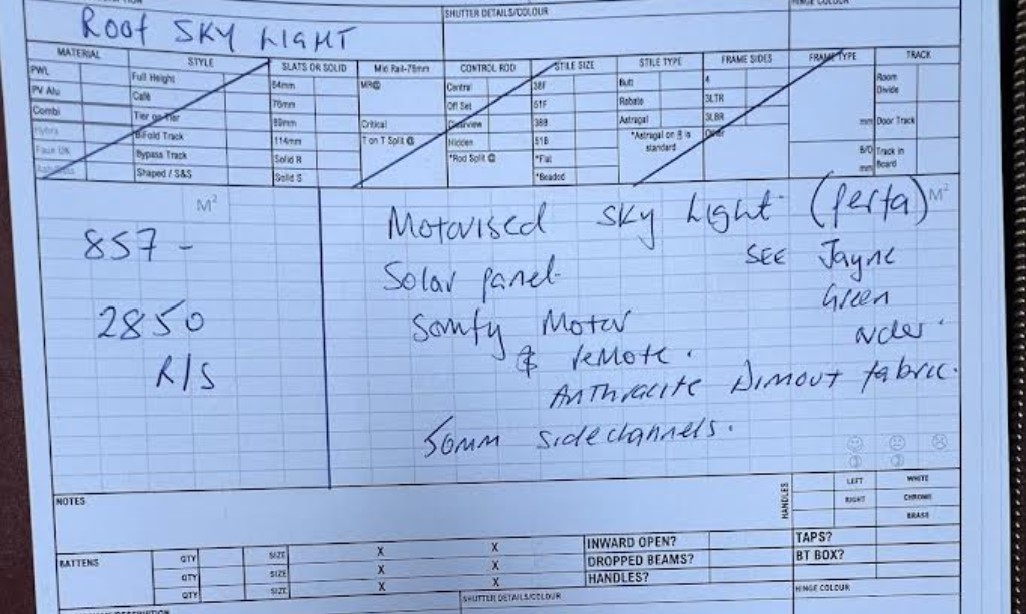 SHUTTER DETAILS/COLOUR
HINGE COLOUR
Roof SKY LIGHT
MATERIAL
STYLE
SLATS OR SOLID
Mid Rail-76mm
CONTROL ROD
STILE SIZE
STILE TYPE
FRAME SIDES
FRAME TYPE
TRACK
PWL
PV Alu
Combi
Hybrid
Faux UK
Full Height
Café
Tier on Tier
BiFold Track
Bypass Track
Shaped / S&S
64mm
76mm
89mm
114mm
Solid R
Solid S
MR@
Critical
T on T Split @
Central
Off Set
Clearview
Hidden
*Rod Split @
38F
51F
38B
51B
*Flat
*Beaded
Butt
Rebate
Astragal
*Astragal on B is
standard
4
3LTR
3LBR
Other
mm
B/D
mm
Room
Divide
Door Track
Track in
Board
M²
M²
857 -
2850
R/S
Motorised Sky Light (Perfa)
SEE Jayne
Green
order.
Solar panel
Somfy Motor
& remote.
Anthracite Dimout fabric.
50mm sidechannels.
NOTES
HANDLES
LEFT
RIGHT
WHITE
CHROME
BRASS
BATTENS
QTY SIZE X X
QTY SIZE X X
QTY SIZE X X
INWARD OPEN?
DROPPED BEAMS?
HANDLES?
TAPS?
BT BOX?
DESCRIPTION
SHUTTER DETAILS/COLOUR
HINGE COLOUR